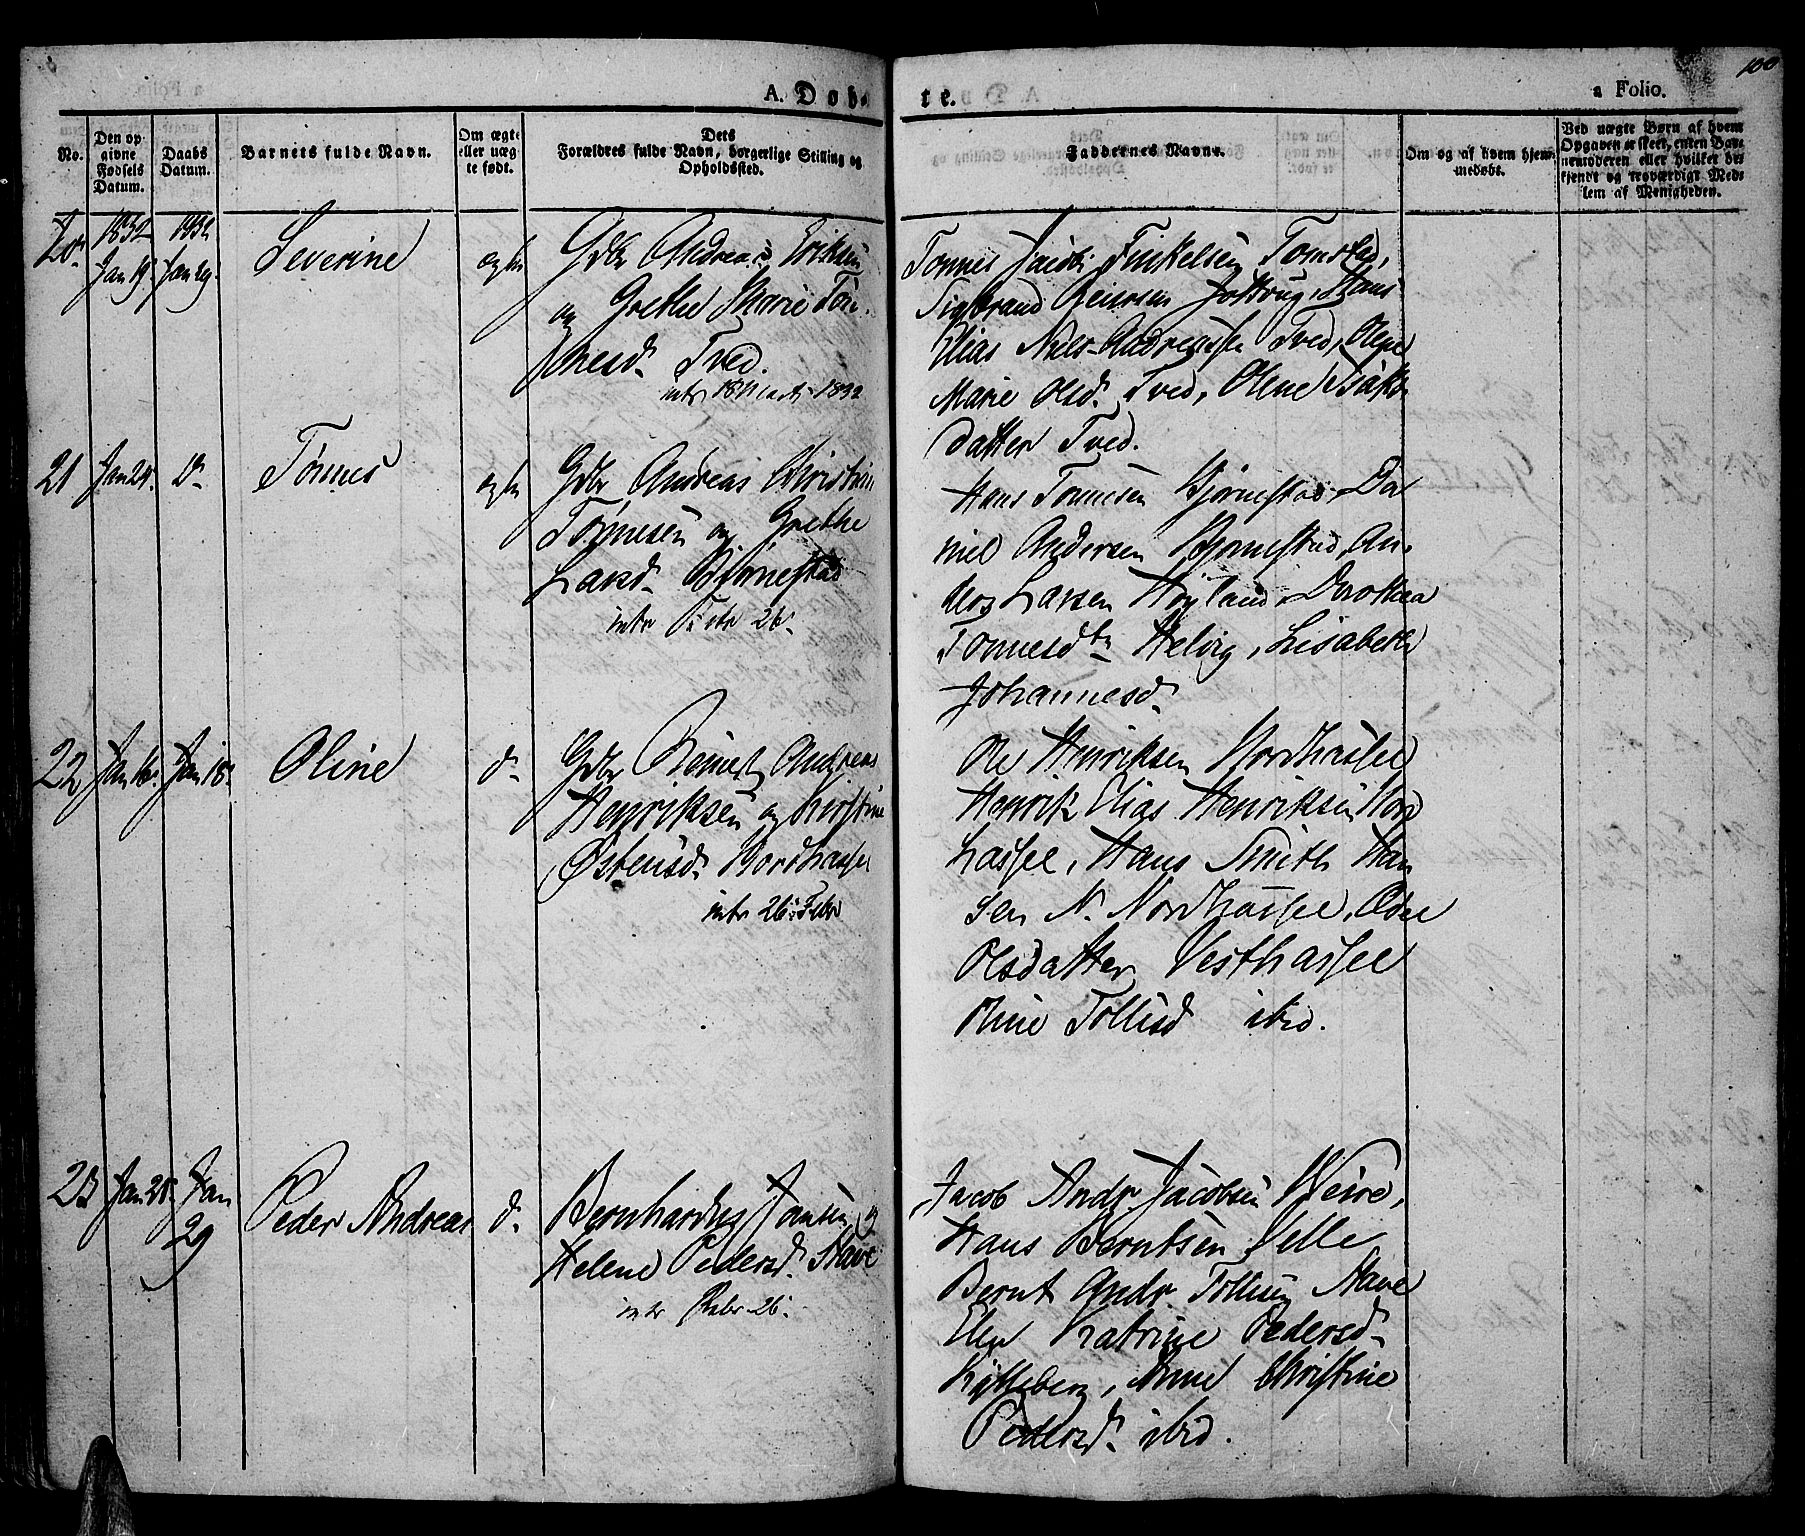 100
A. Døbte.
a Folio.
No.
Den op-
givne
Fødsels
Datum.
Daabs
Datum.
Barnets fulde Navn.
Om ægte
eller uæg-
te født.
Dets
Forældres fulde Navn, borgerlige Stilling og
Opholdssted.
Faddernes Navne.
Om og af hvem hjem-
medøbt.
Ved uægte Børn af hvem
Opgaven er skeet, enten Bar-
nemoderen eller hvilket be-
kjendt og troværdigt Med-
lem af Menigheden.
20
1832
Jan 19.
1832
Jan 29.
Severine
ægte
Gdbr Andreas Eriksen
og Grethe Marie Tøn-
nesd. Tved.
intr 18 Marts 1832
Tønnes Jacob Finkelsen Tomstad,
Sigbrand Reiersen Jottrug, Hans
Elias Niels Andreassen Tved, Olene
Marie Olsd. Tved, Olene Isaks-
datter Tved.
21
Jan 24.
D.
Tønnes
ægte
Gdbr Andreas Christian
Tønnesen og Grethe
Larsd. Bjørnestad
intr Febr 26.
Hans Tønnesen Bjørnestad, Da
niel Andersen Bjørnestad, An-
ders Larsen Høyland, Dorothea
Tønnesdtr Helvig, Lisabeth
Johannesd.
22
Jan 16.
Jan 18.
Oline
d.
Gdbr Berndt Andreas
Henriksen og Kirstine
Østensd. Nordhassel
intr 26. Febr
Ole Henriksen Nordhassel
Henrik Elias Henriksen Nord
hassel, Hans Smith Han
sen N. Nordhassel,
Olsdatter Vesthassel
Oline Tollisd ibid.
23
Jan 28.
Jan
29
Peder Andreas
d.
Bernhardus Jansen og
Helene Pedersd. Stave
intr Febr 26.
Jacob Andr. Jacobsen Weire,
Hans Berntsen Velle
Bernt Andr. Tollisen Stave
Elen Katrine Pedersd.
Anne Christine
Pedersd. ibid.